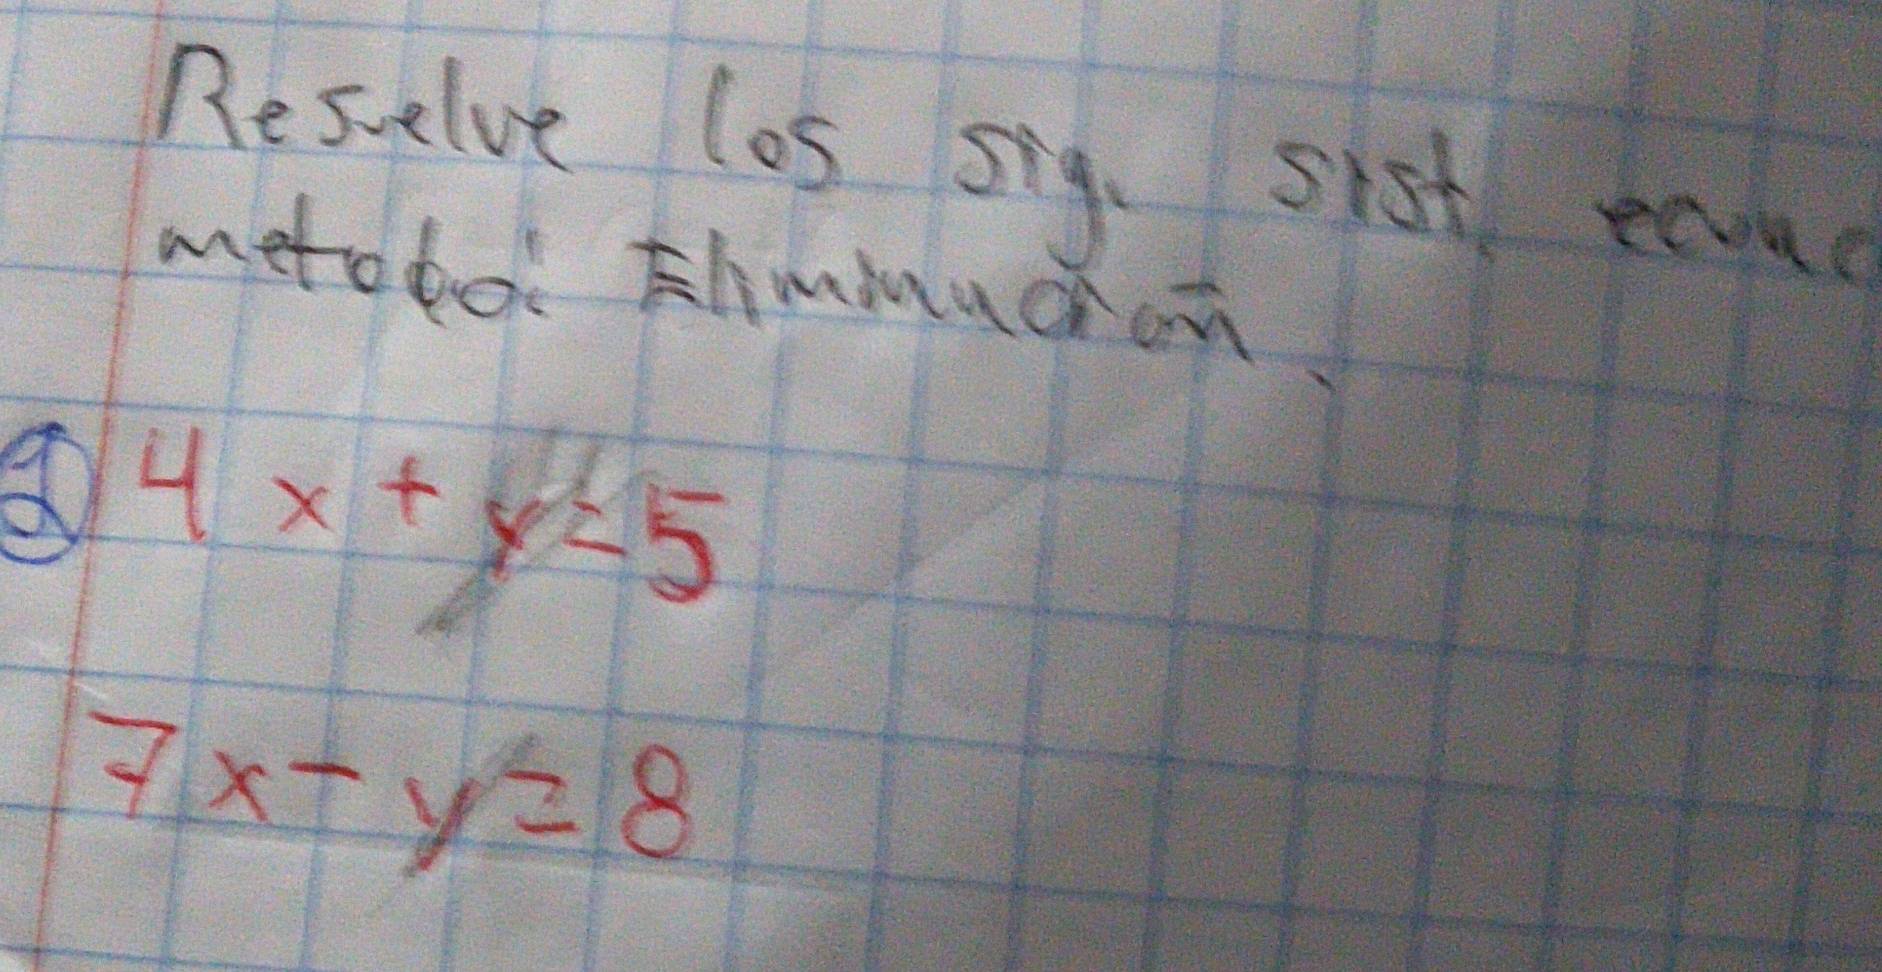 Resuelve los sig. sist. ecuac
metodo: Eliminación.
① 4x + y = 5
7x - y = 8